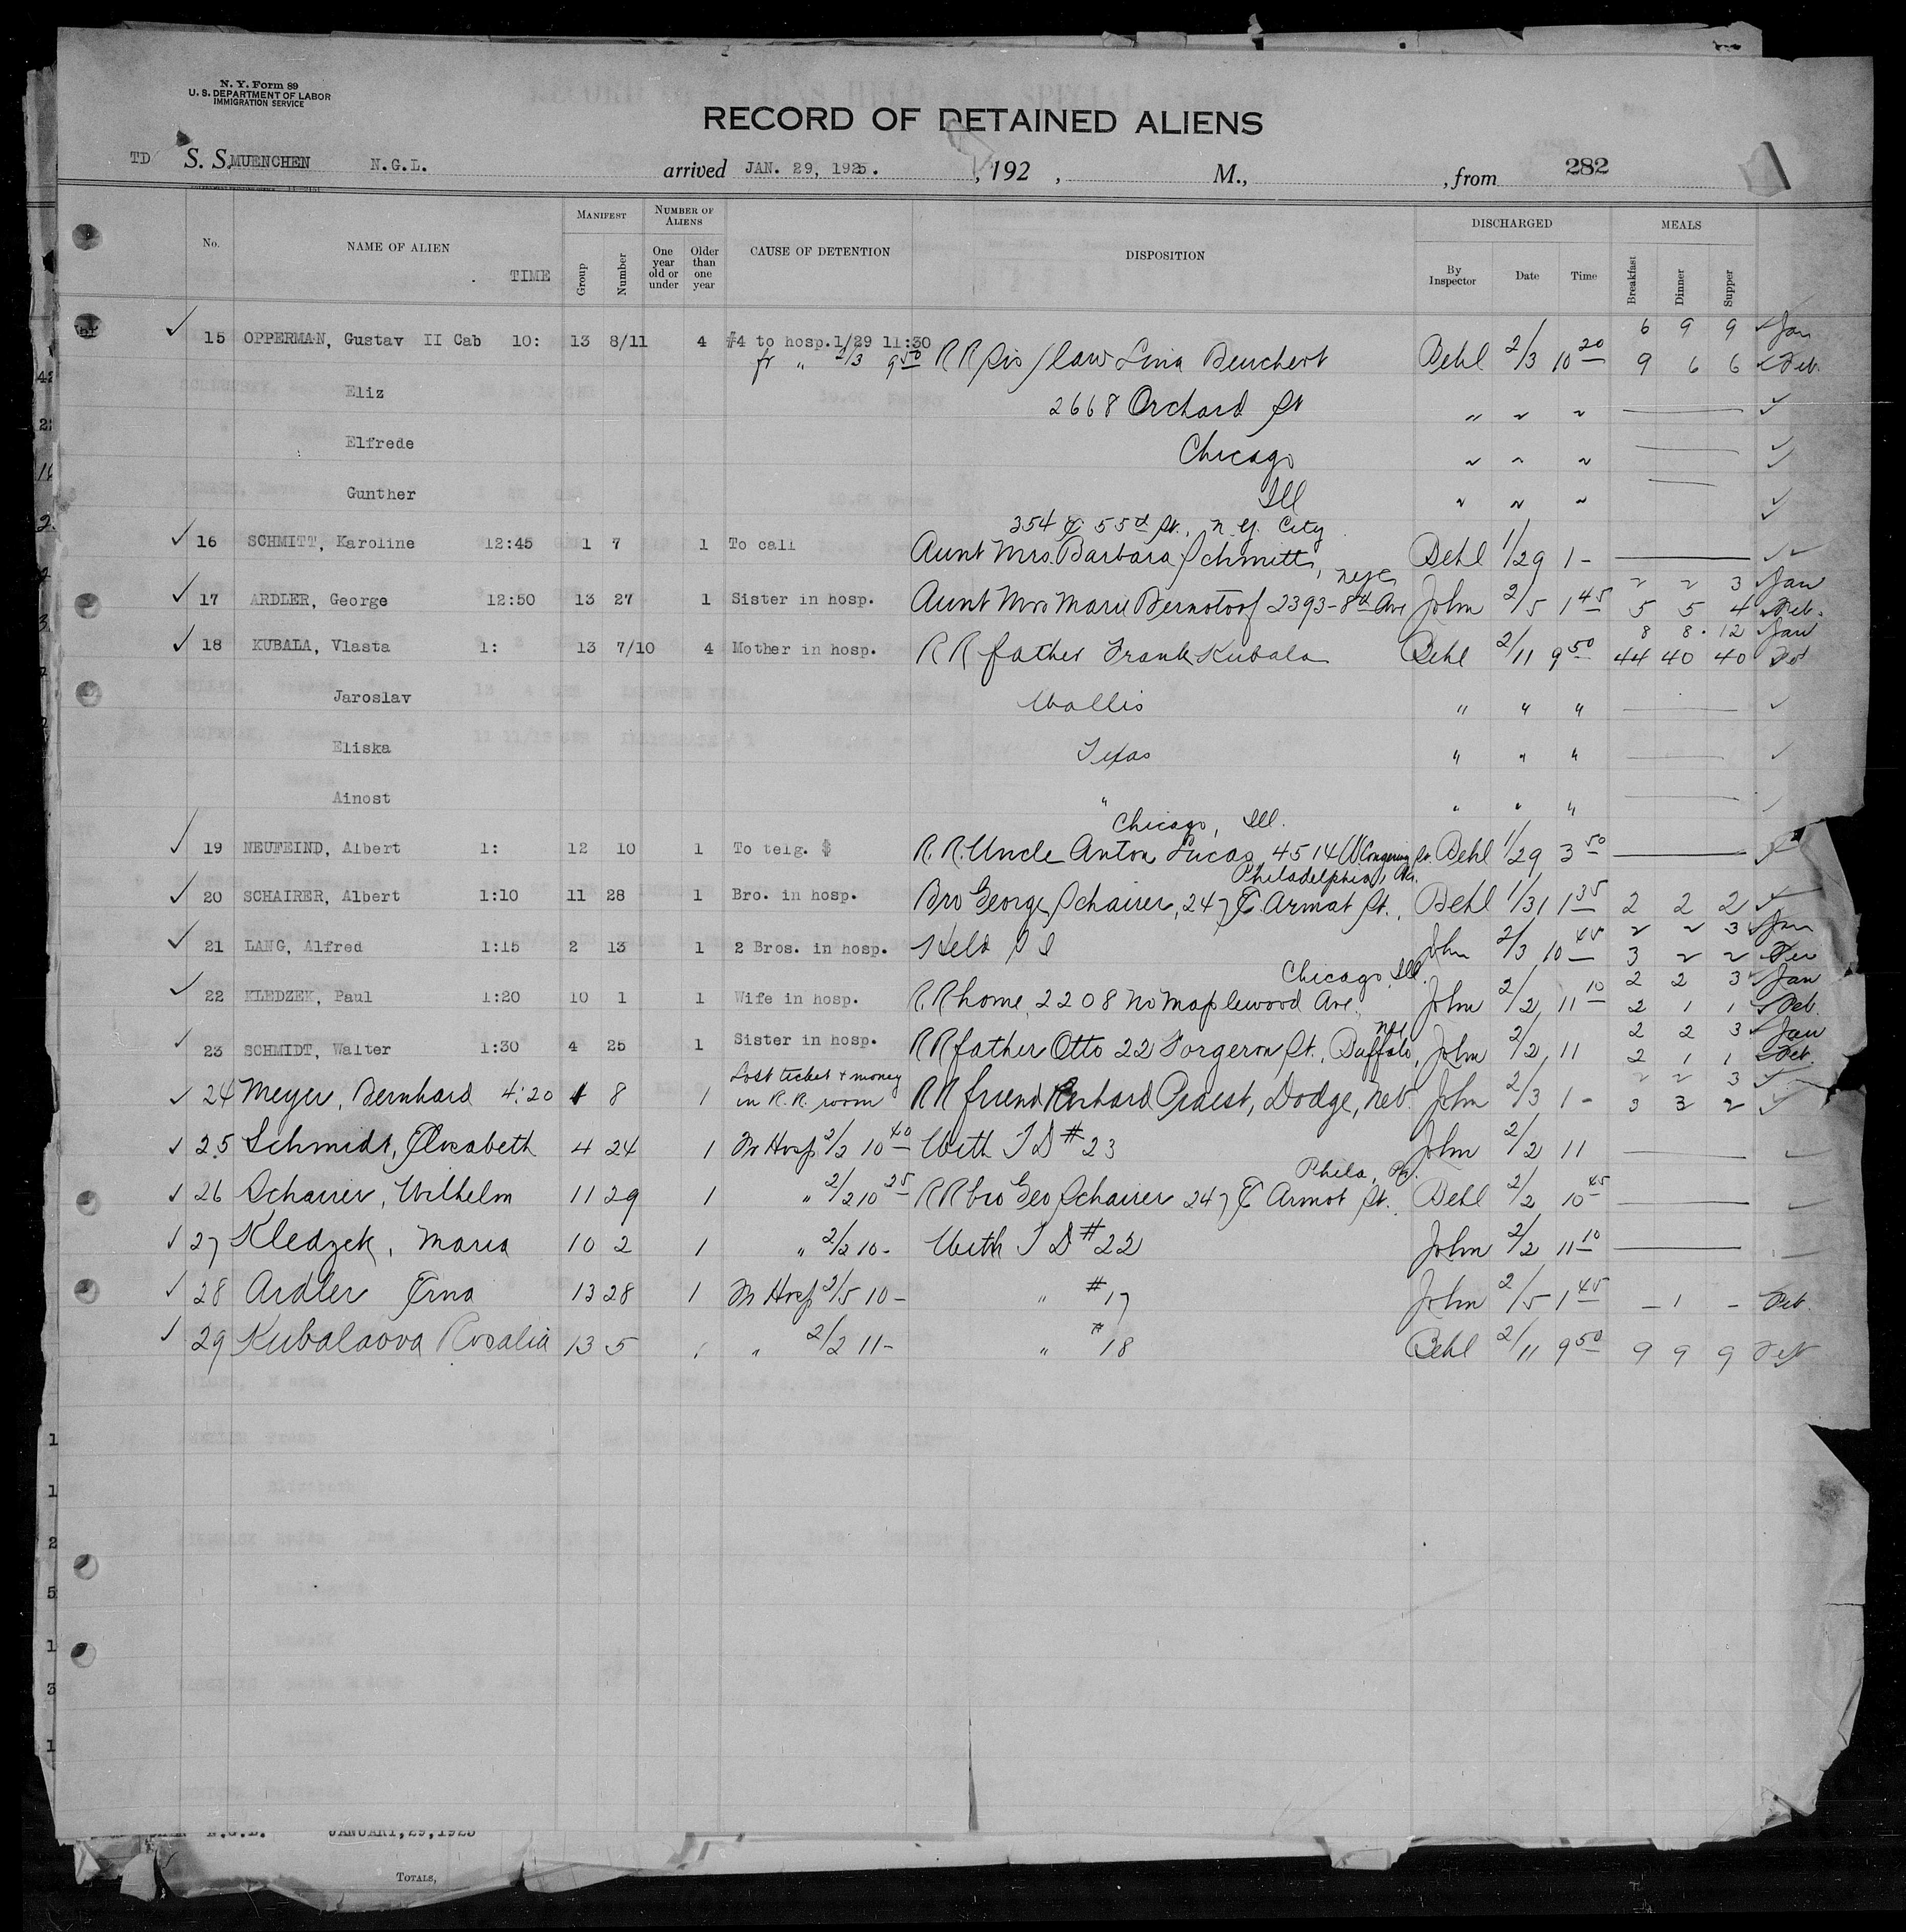 N. Y. Form 89
U. S. DEPARTMENT OF LABOR
IMMIGRATION SERVICE
RECORD OF DETAINED ALIENS
TD S. S. MUENCHEN N.G.L. arrived JAN. 29, 1925. , 192 , M., , from 282
No. NAME OF ALIEN TIME MANIFEST Group Number NUMBER OF ALIENS One year old or under Older than one year CAUSE OF DETENTION DISPOSITION DISCHARGED By Inspector Date Time MEALS Breakfast Dinner Supper
6 9 9 Jan
15 OPPERMAN, Gustav II Cab 10: 13 8/11 4 #4 to hosp.1/29 11:30
fr " 2/3 9 50 RR sis/law Lina Beuchert Behl 2/3 10 20 9 6 6 Feb.
Eliz 2668 Orchard St " " "
Elfrede Chicago " " "
Gunther Ill " " "
354 E 55th St., N.Y. City
16 SCHMITT, Karoline 12:45 1 7 1 To call Aunt Mrs. Barbara Schmitt, Behl 1/29 1 -
NYC 2 2 3 Jan
17 ARDLER, George 12:50 13 27 1 Sister in hosp. Aunt Mrs Marie 2393-8th Ave John 2/5 1 45 5 5 4 Feb.
8 8 12 Jan
18 KUBALA, Vlasta 1: 13 7/10 4 Mother in hosp. RR father Frank Kubala Behl 2/11 9 50 44 40 40 Feb
Jaroslav Wallis " " "
Eliska Texas " " "
Ainost " " " "
Chicago, Ill.
19 NEUFEIND, Albert 1: 12 10 1 To telg. $ R.R. Uncle Anton Lucas 4514 W St. Behl 1/29 3 50
Philadelphia, Pa.
20 SCHAIRER, Albert 1:10 11 28 1 Bro. in hosp. Bro George Schairer, 247 E Armat St., Behl 1/31 1 35 2 2 2
2 2 3 Jan
21 LANG, Alfred 1:15 2 13 1 2 Bros. in hosp. Held S I John 2/3 10 45 3 2 2 Feb
Chicago, Ill. 2 2 3 Jan
22 KLEDZEK, Paul 1:20 10 1 1 Wife in hosp. R.R home, 2208 No Maplewood Ave. John 2/2 11 10 2 1 1 Feb.
NY 2 2 3 Jan
23 SCHMIDT, Walter 1:30 4 25 1 Sister in hosp. RR father Otto 22 Forgeron St., Buffalo, John 2/2 11 2 1 1 Feb.
Lost ticket + money 2 2 3
24 Meyer, Bernhard 4:20 1 8 1 in R.R. room RR friend Gerhard Praest, Dodge, Neb. John 2/3 1 - 3 3 2
25 Schmidt, Elisabeth 4 24 1 Fr Hosp 2/2 10 40 With T D #23 John 2/2 11
Phila, Pa.
26 Schairer, Wilhelm 11 29 1 " 2/2 10 25 RR bro Geo Schairer 247 E Armat St. Behl 2/2 10 45
27 Kledzek, Maria 10 2 1 " 2/2 10 - With T D #22 John 2/2 11 10
28 Ardler Erna 13 28 1 Fr Hosp 2/5 10 - " #17 John 2/5 1 45 - 1 - Feb.
29 Kubalaova Rosalia 13 5 1 " 2/2 11 - " #18 Behl 2/11 9 50 9 9 9 Feb
N.G.L. JANUARY,29,1925
TOTALS,